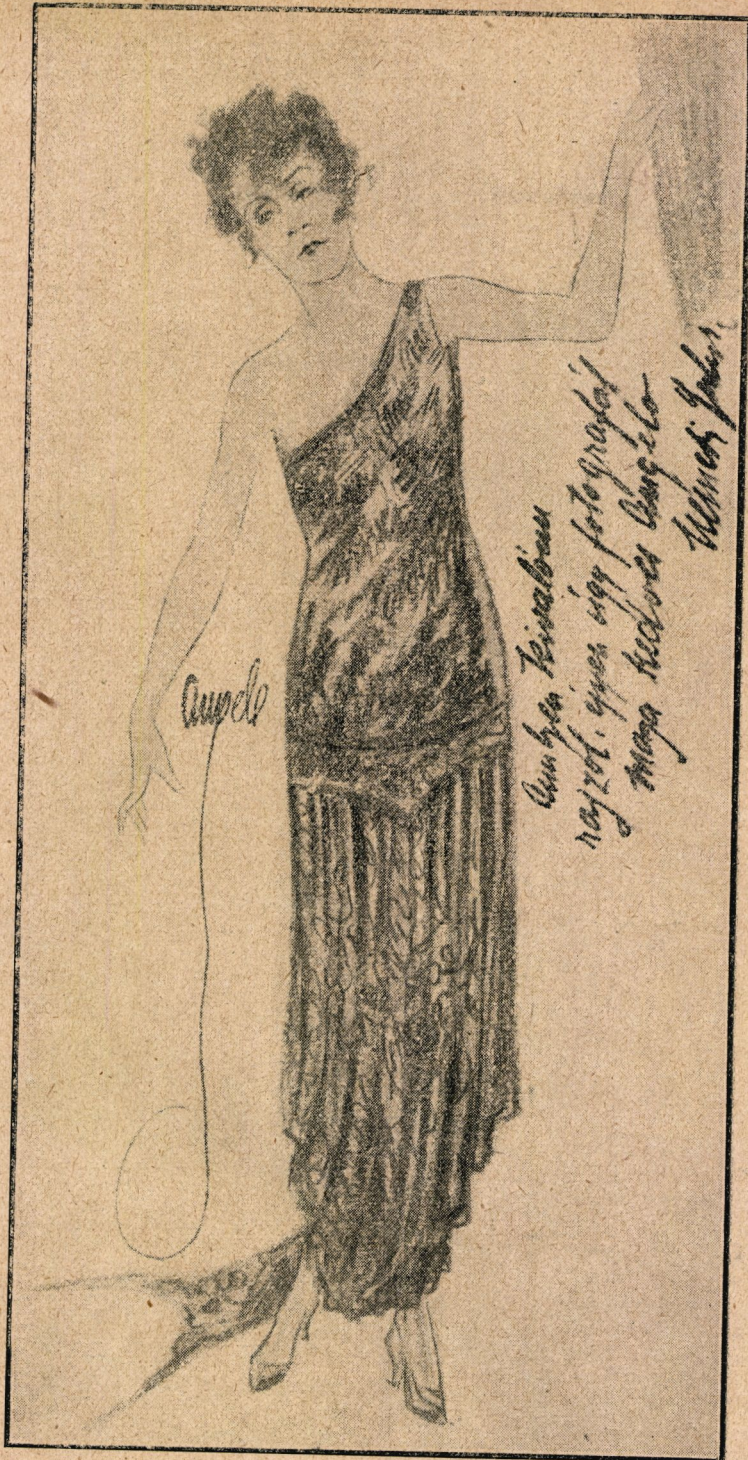 Angelo
Amilyen kiválóan
rajzol, éppen úgy fotografál
maga kedves Angelo